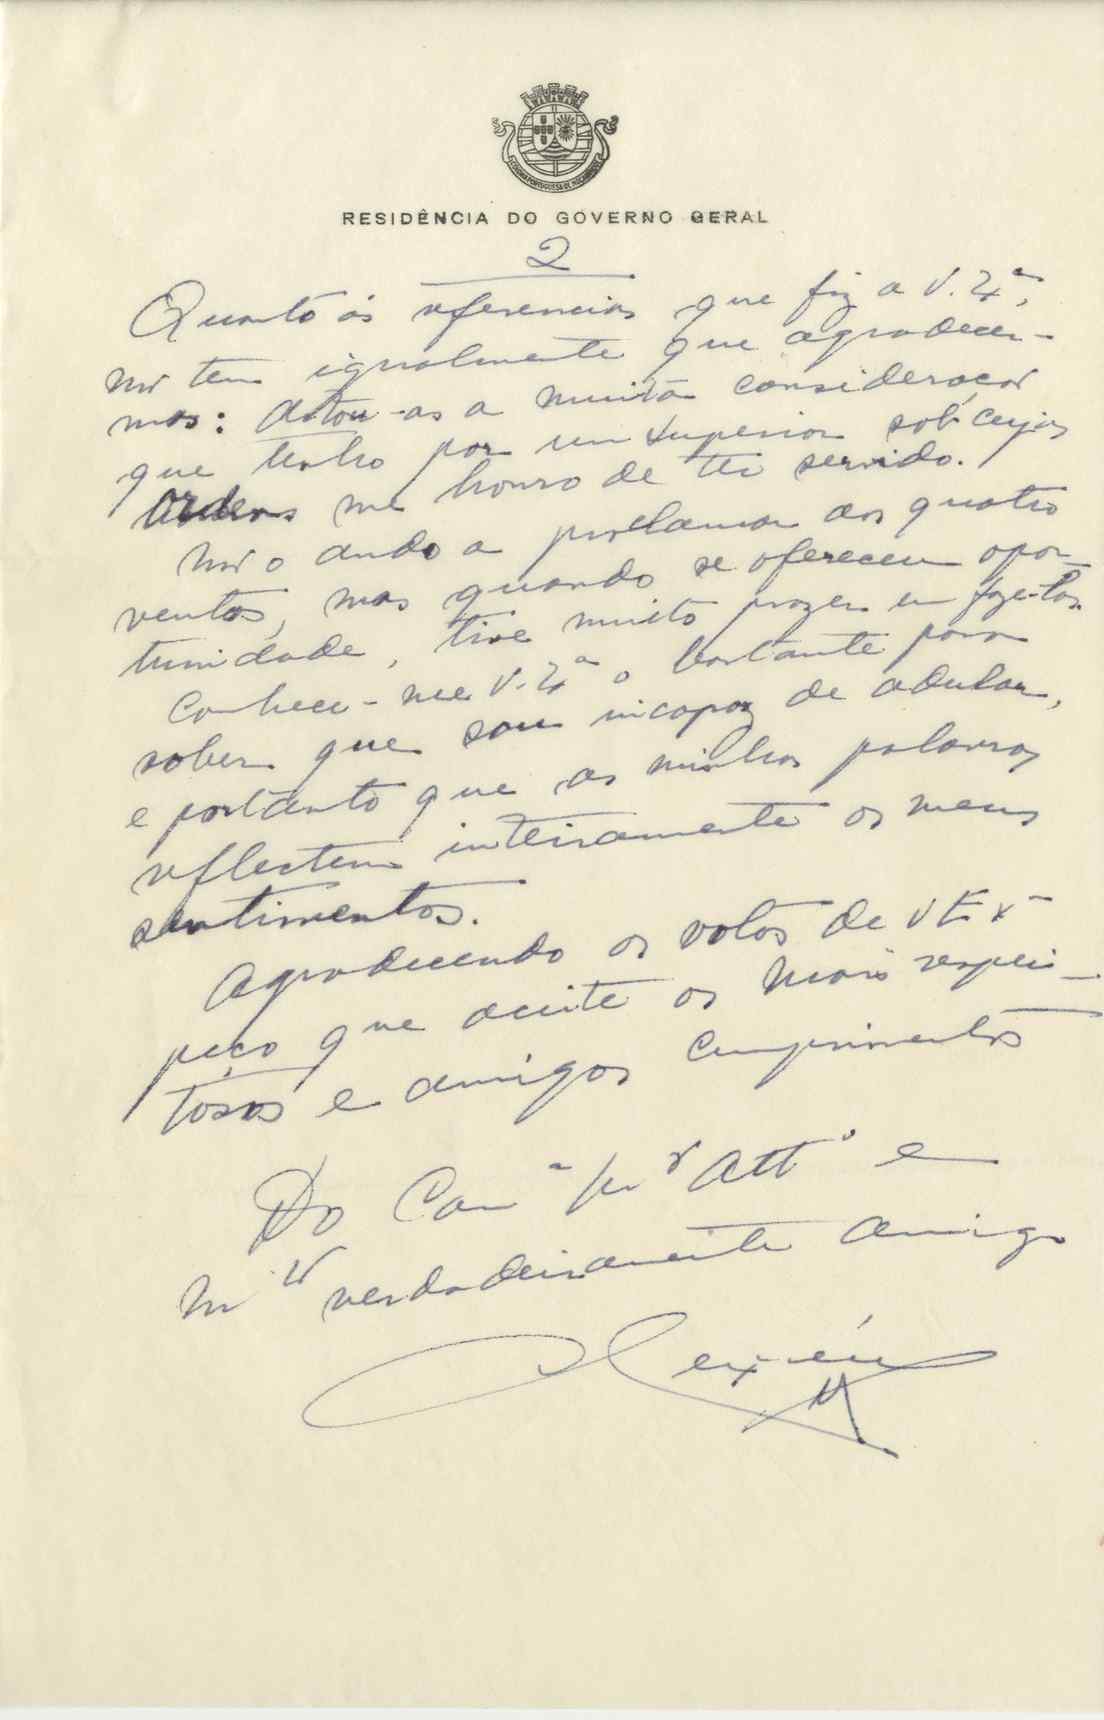 COLONIA PORTUGUESA DE MOÇAMBIQUE
RESIDÊNCIA DO GOVERNO GERAL
2
Quanto ás referencias que fiz a V. Exª,
não tem igualmente que agradecer-
mas: ditou-as a muita consideração
que tenho por um superior sob cujas
ordens me honro de ter servido.
Não ando a proclamar aos quatro
ventos, mas quando se ofereceu opor-
tunidade, tive muito prazer em faze-las.
Conhece-me V. Exª o bastante para
saber que sou incapaz de adular,
e portanto que as minhas palavras
reflectem inteiramente os meus
sentimentos.
Agradecendo os votos de V Exª
peço que aceite os mais respei-
tosos e amigos cumprimentos
Do Camª Attº e
verdadeiramente amigo